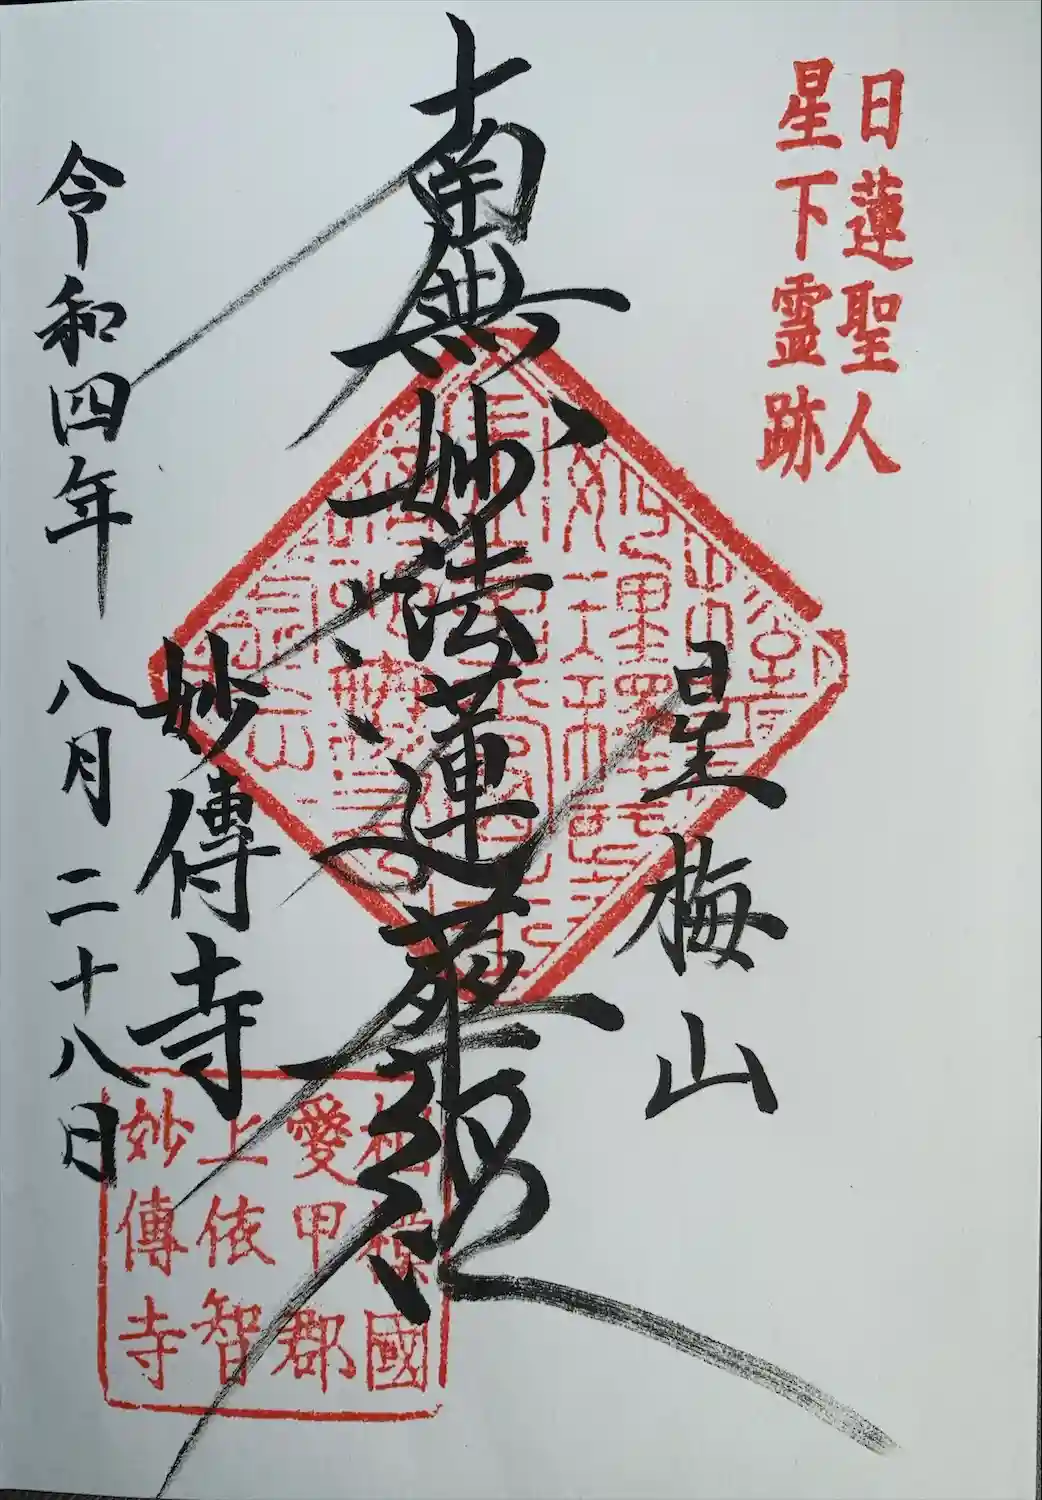 日蓮聖人
星下霊跡
星梅山
南無妙法蓮華経
妙傳寺
令和四年 八月 二十八日
相模國
愛甲郡
上依智
妙傳寺